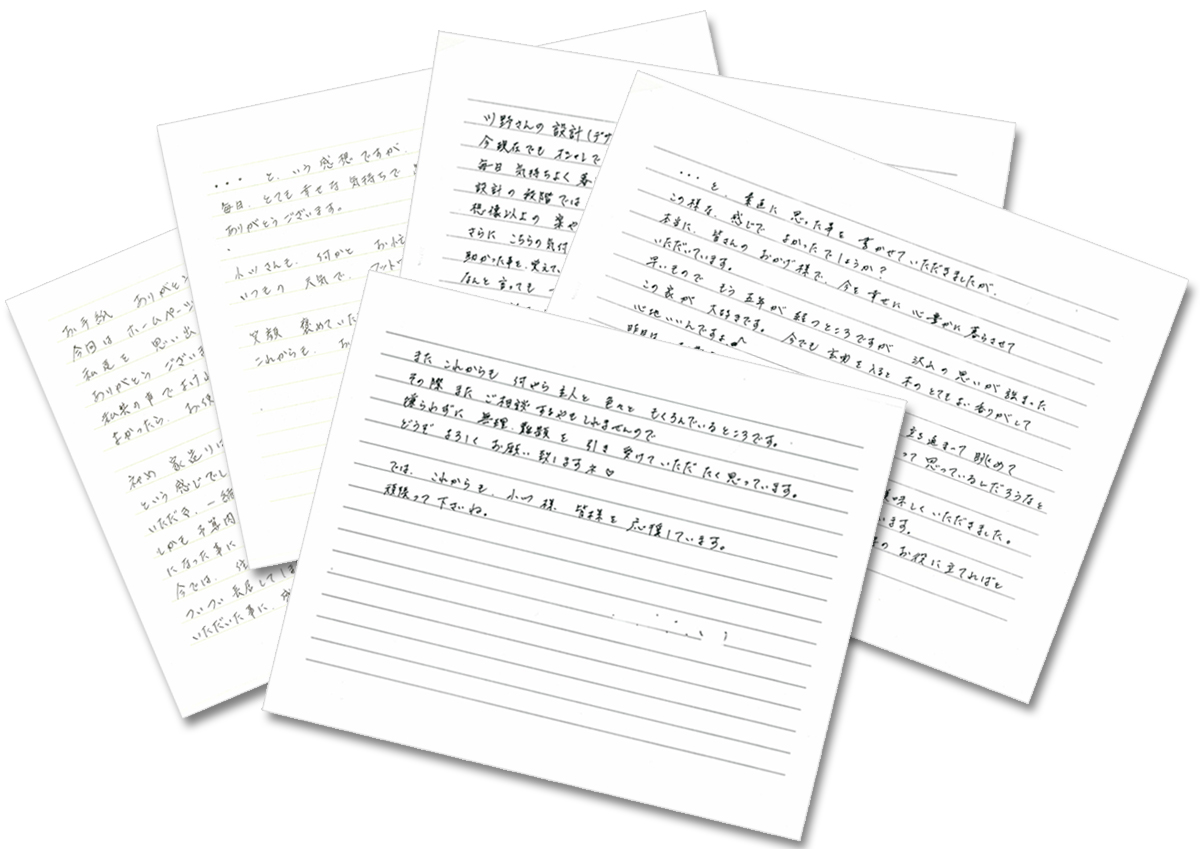 お手紙 ありがとう
今回は ホームページ
私達を 思い出
ありがとう ございま
私共の声でおけ
よかったら、お役
初め 家造りに
という 感じでし
いただき、一緒
しかも 予算内
になった事に
今では、住
ついつい 長居してしま
いただいた事に、感
・・・ と、いう 感想 ですが、
毎日、とても 幸せな 気持ちで
ありがとうございます。
小川さんも、何かと お忙
いつもの 元気で、フットワ
笑顔 褒めていた
これからも、お
川野さんの 設計(デザ
今現在でも オシャレで
毎日 気持ちよく 暮
設計の 段階では
想像以上の 楽や
さらに こちらの気付
助かった事を、覚えて、
なんと 言っても 一
・・・ と、素直に 思った事を 書かせて いただきましたが、
この様な、感じで よかったでしょうか?
本当に、皆さんの おかげ様で、今を 幸せに 心豊かに 暮らさせて
いただいています。
早いもので もう 五年が 経つところですが 沢山の 思いが 詰まった
この家が 大好きです。 今でも 玄関を 入ると 木の とてもよい 香りがして
心地いいんですよ♪
昨日は
立ち止まって 眺めて
って 思っているしだろうなと
美味しくいただきました。
います。
の お役に立てればと
また これからも 何やら 主人と 色々と もくろんでいるところです。
その際 また ご相談 するやもしれませんので
嫌らわずに 無理、難題 を 引き 受けて いただ たく 思っています。
どうぞ よろしく お願い 致しますネ♡
では、これからも、小川 様 皆様を 応援しています。
頑張って 下さいね。